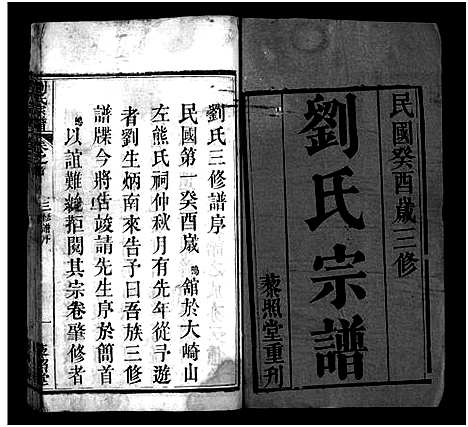 民國癸酉歲三修
劉氏宗譜
藜照堂重刊
劉氏三修譜序
民國第一癸酉歲鳴舘於大崎山
左熊氏祠仲秋月有先年從予遊
者劉生炳南來告予曰吾族三修
譜牒今將告竣請先生序於簡首
鳴以誼難終拒閱其宗卷肇修者
三修譜序
一
藜照堂